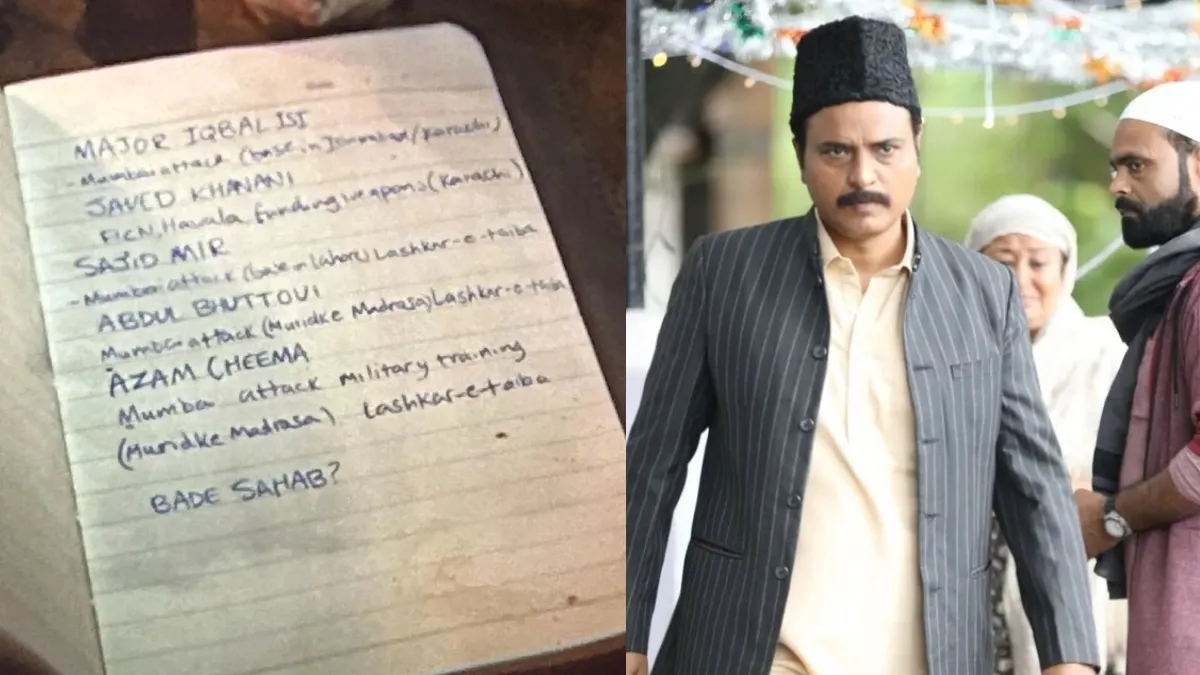 MAJOR IQBAL ISI
- Mumbai attack (base in Islamabad/Karachi)
JAVED KHANANI
FICN, Havala funding weapons (Karachi)
SAJID MIR
- Mumbai attack (base in Lahore) Lashkar-e-taiba
ABDUL BHUTTOVI
Mumbai attack (Muridke Madrasa) Lashkar-e-taiba
AZAM CHEEMA
Mumba attack military training
(Muridke Madrasa) Lashkar-e-taiba
BADE SAHAB?